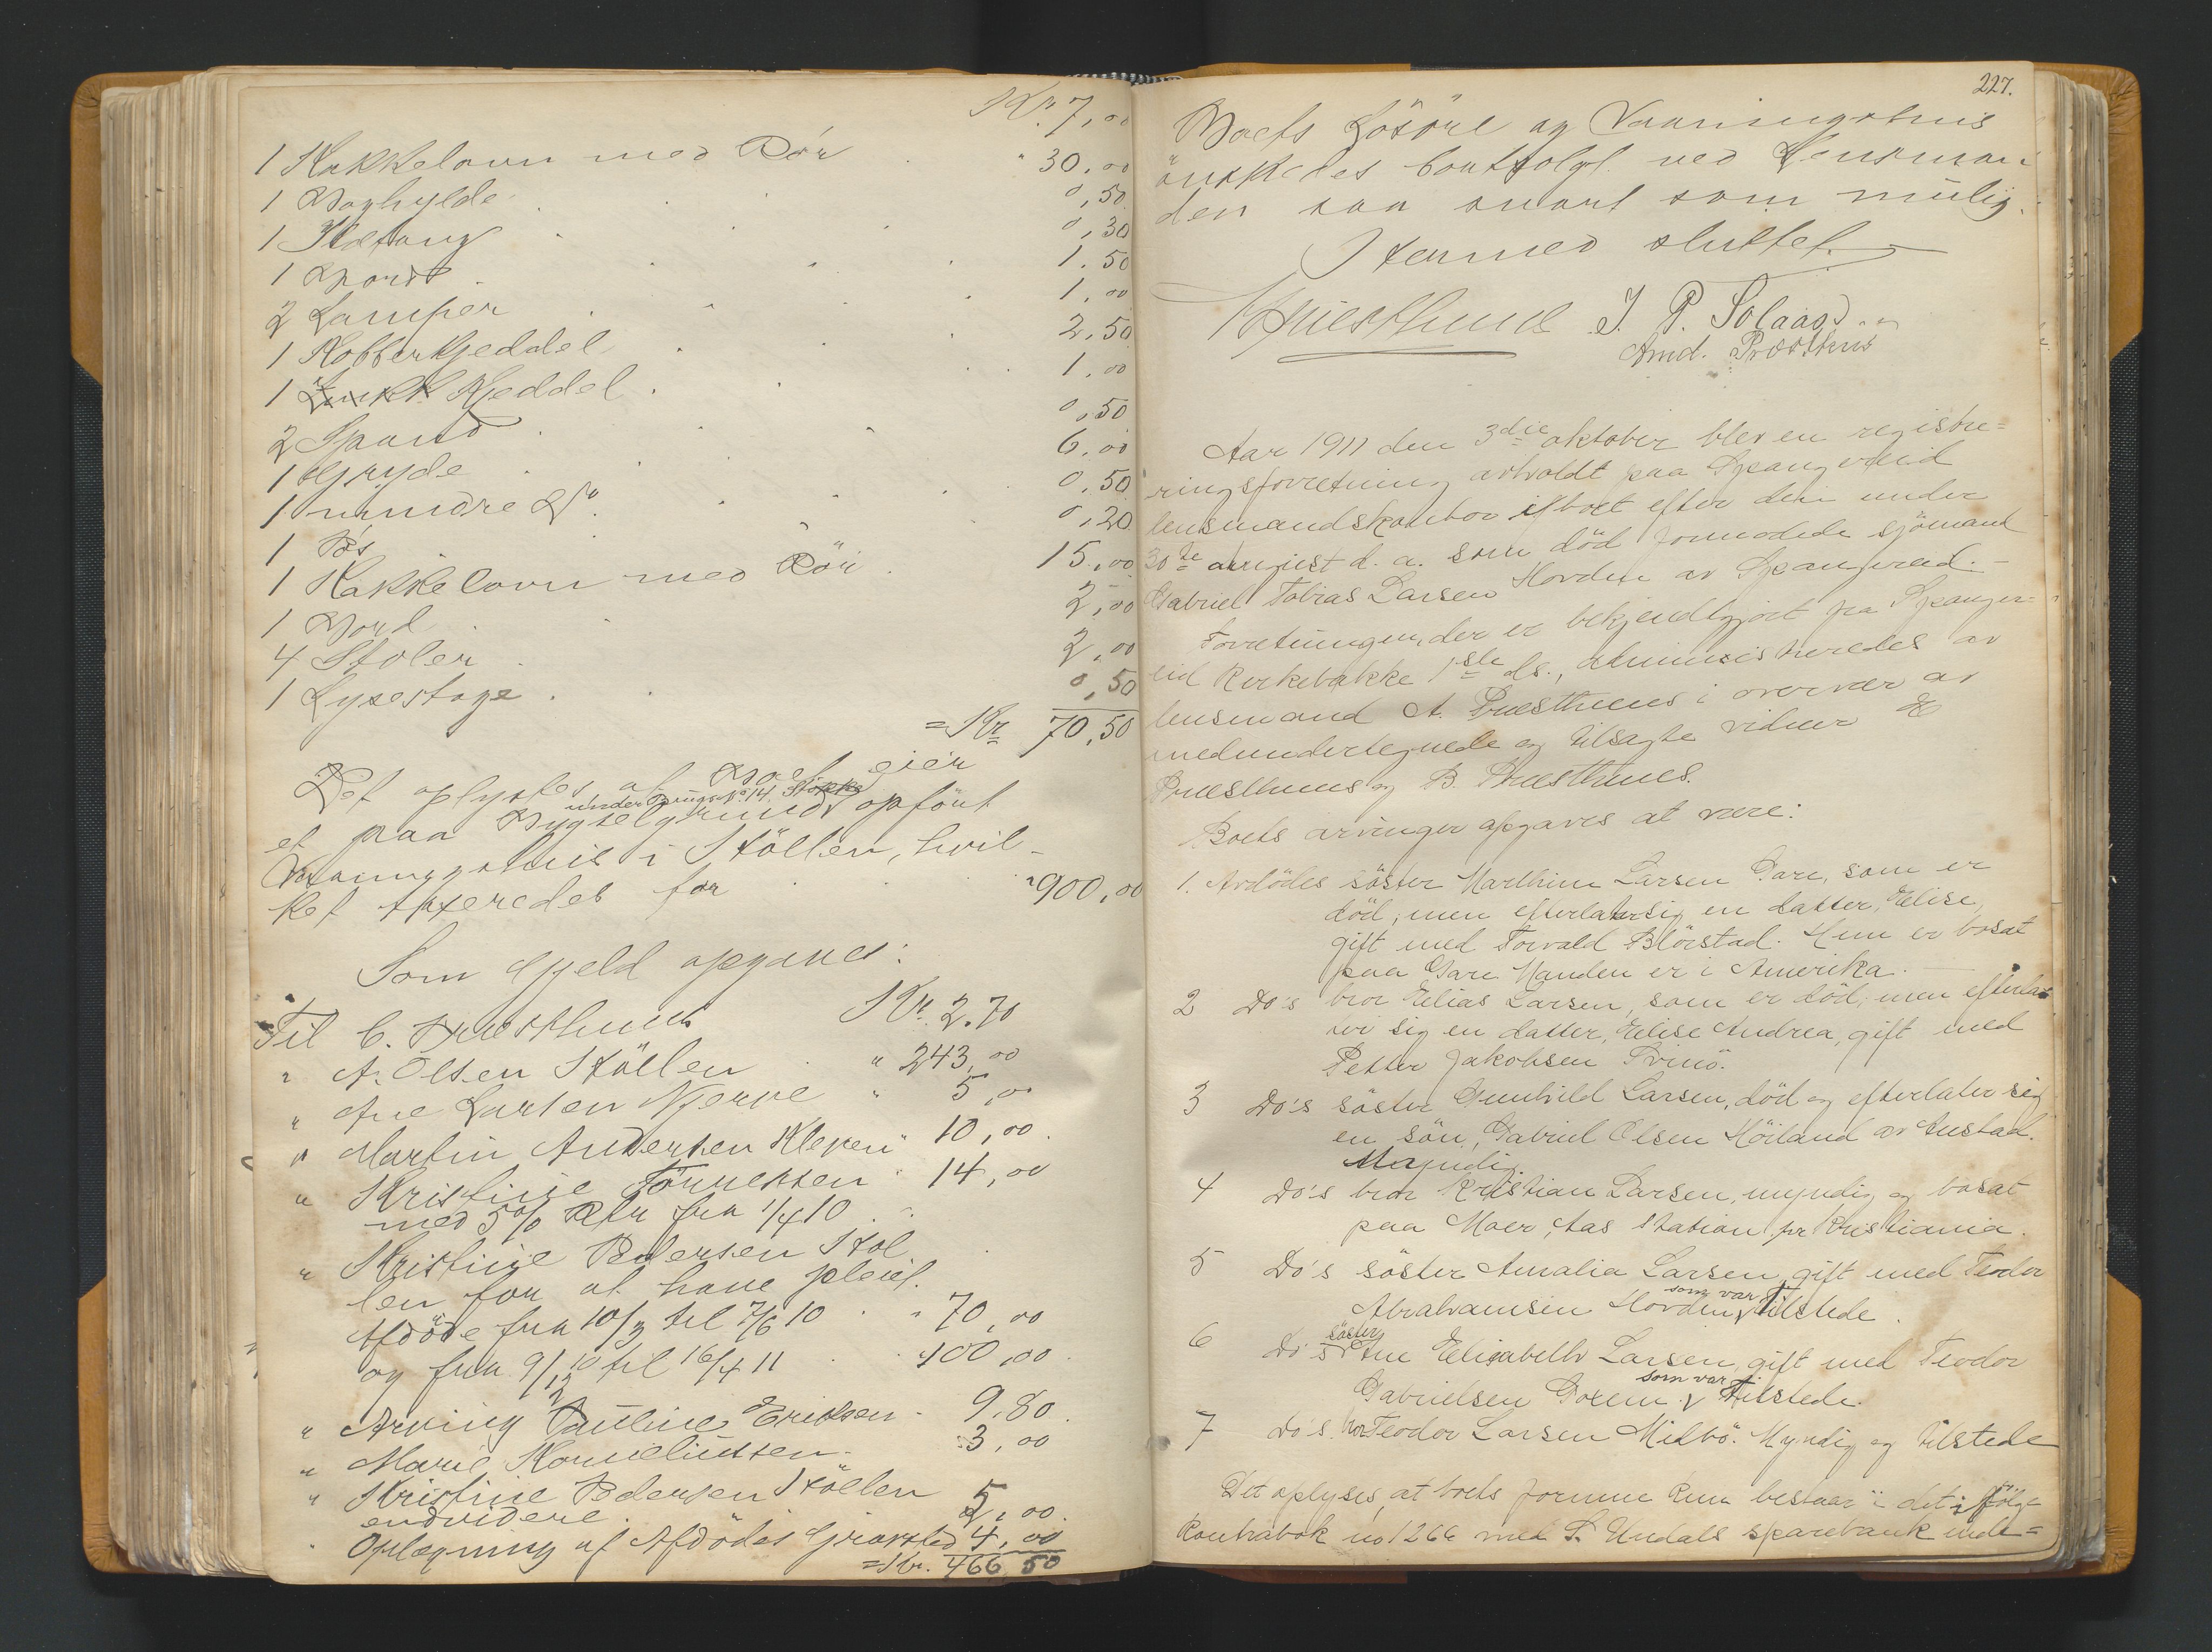 Kr. 7,00
1 Kakkelovn med Rör " 30,00
1 Boghylde 0,50
1 Ildtang 0,30
1 Bord 1.50
2 Lamper 1,00
1 Kobberkjeddel 2,50
1 Kjeddel 1,00
2 Spand 0,50
1 Gryde 6,00
1 mindre Do 0,50
1 Bös 0,20
1 Kakkelovn med Rör 15,00
1 Bord 2,00
4 Stoler 2,00
1 Lysestage 0,50
= Kr 70,50
Det oplystes at Boet eier
under Brugs No 14 Stokke
et paa Bygselgrund opfört
Vaaningshus i Stöllen, hvil-
ket taxeredes for " 900,00
Som Gjeld opgaves:
Til C. Præsthuus Kr. 2.70
" A. Olsen Stöllen " 243,00
" Ane Larsen Njerve " 5,00
" Martin Andersen Kleven " 10,00
" Kristine Tönnessen " 14,00
med 5% Rtr fra 1/4 10
" Kristine Pedersen Stöl
len for at have pleiet
Afdöde fra 10/3 til 7/6 10 " 70,00
og fra 9/12 10 til 16/4 11 " 100,00
" Arving Pauline Eriksen - 9.80
" Marie Korneliussen - 3,00
" Kristine Pedersen Stöllen
endvidere 5,00
" Oplægning af Afdödes Gravsted 4,00
= Kr. 466,50
227.
Boets Lösöre og Vaaningshus
önskedes bortsolgt ved Lensman
den saa snart som mulig.
Hermed sluttet.
Præsthuus J. P. Solaas
Amd. Præsthus
Aar 1911 den 3die oktober blev en registre=
ringsforretning avholdt paa Spangereid
lensmandskontor i boet efter den under
30te august d. a. som död formodede sjömand
Gabriel Tobias Larsen Hovden av Spangereid.-
Forretningen, der er bekjendtgjort fra Spanger=
eid kirkebakke 1ste ds., administreredes av
lensmand A. Præsthuus i overvær av
medundertegnede og tilsagte vidner E
Præsthuus og B. Præsthuus.
Boets arvinger opgaves at være:
1. Avdödes söster Marthine Larsen Gare, som er
död, men efterlater sig en datter, Elise,
gift med Torvald Blörstad. Hun er bosat
paa Gare Manden er i Amerika.
2 Do's bror Elias Larsen, som er död, men efterla=
ter sig en datter, Elise Andrea, gift med
Petter Jakobsen Svinö.
3 Do's söster Gunhild Larsen, död og efterlater sig
en sön, Gabriel Olsen Höiland av Austad.
Myndig.
4 Do's bror Kristian Larsen, myndig og bosat
paa Moer, Aas Station pr Kristiania.
5 Do's söster Amalia Larsen, gift med Teodor
som var
Abrahamsen Hovden, tilstede.
söster
6 Do's Ane Elisabeth Larsen, gift med Teodor
som var
Gabrielsen Gosen, tilstede.
7 Do's bror Teodor Larsen Midbö. Myndig og tilstede
Det oplyses, at boets formue kun bestaar i det i fölge
Kontrabok no 1266 med S. Undals sparebank inde=